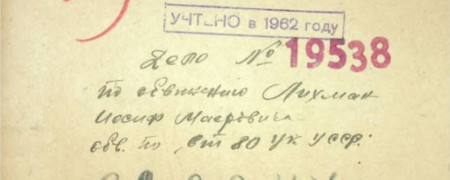 УЧТЕНО в 1962 году
Дело № 19538
по обвинению Лихман
Иосиф Маерович
обв. по ст 80 УК УССР.